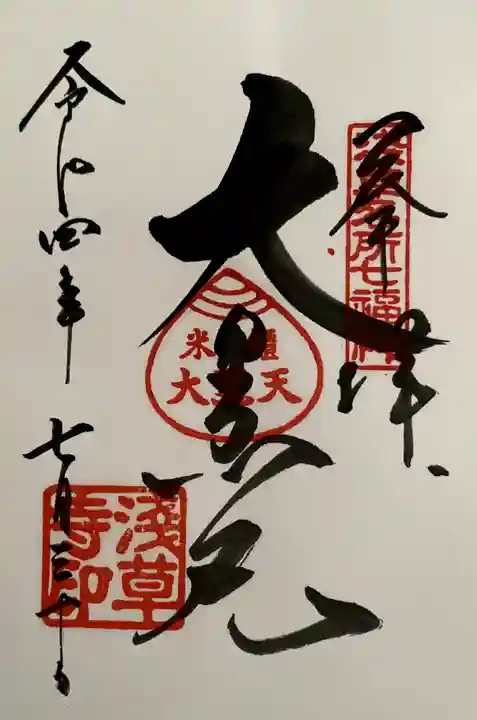 奉拝
浅草名所七福神
大黒天
米櫃
大黒天
令和四年 七月三十日
浅草寺印